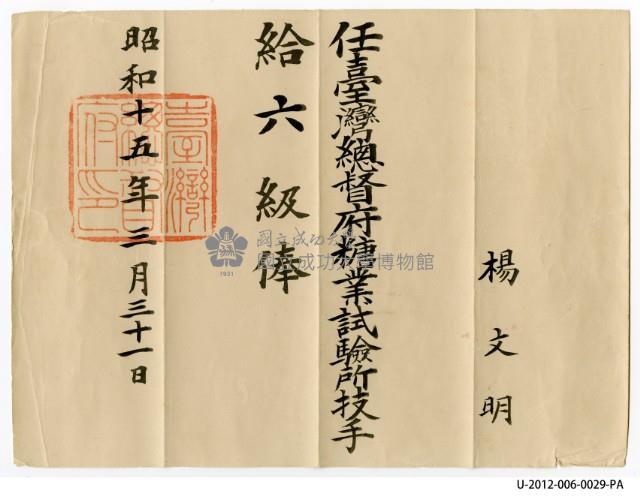 楊文明
任臺灣總督府糖業試驗所技手
給六級俸
昭和十五年三月三十一日
臺灣總督府印
國立成功大學
國立成功大學博物館
1931
U-2012-006-0029-PA